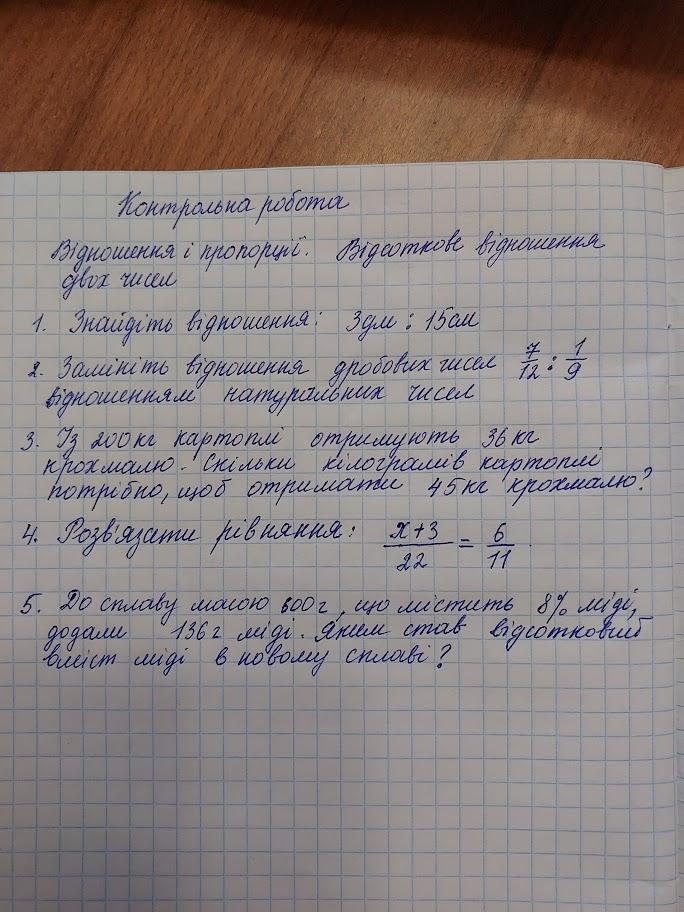 Контрольна робота
Відношення і пропорції. Відсоткове відношення
двох чисел
1. Знайдіть відношення: 3дм : 15см
2. Замініть відношення дробових чисел 7/12 : 1/9
відношенням натуральних чисел
3. Із 200кг картоплі отримують 36кг
крохмалю. Скільки кілограмів картоплі
потрібно, щоб отримати 45кг крохмалю?
4. Розв'язати рівняння: (x+3)/22 = 6/11.
5. До сплаву масою 600г, що містить 8% міді,
додали 136г міді. Яким став відсотковий
вміст міді в новому сплаві?